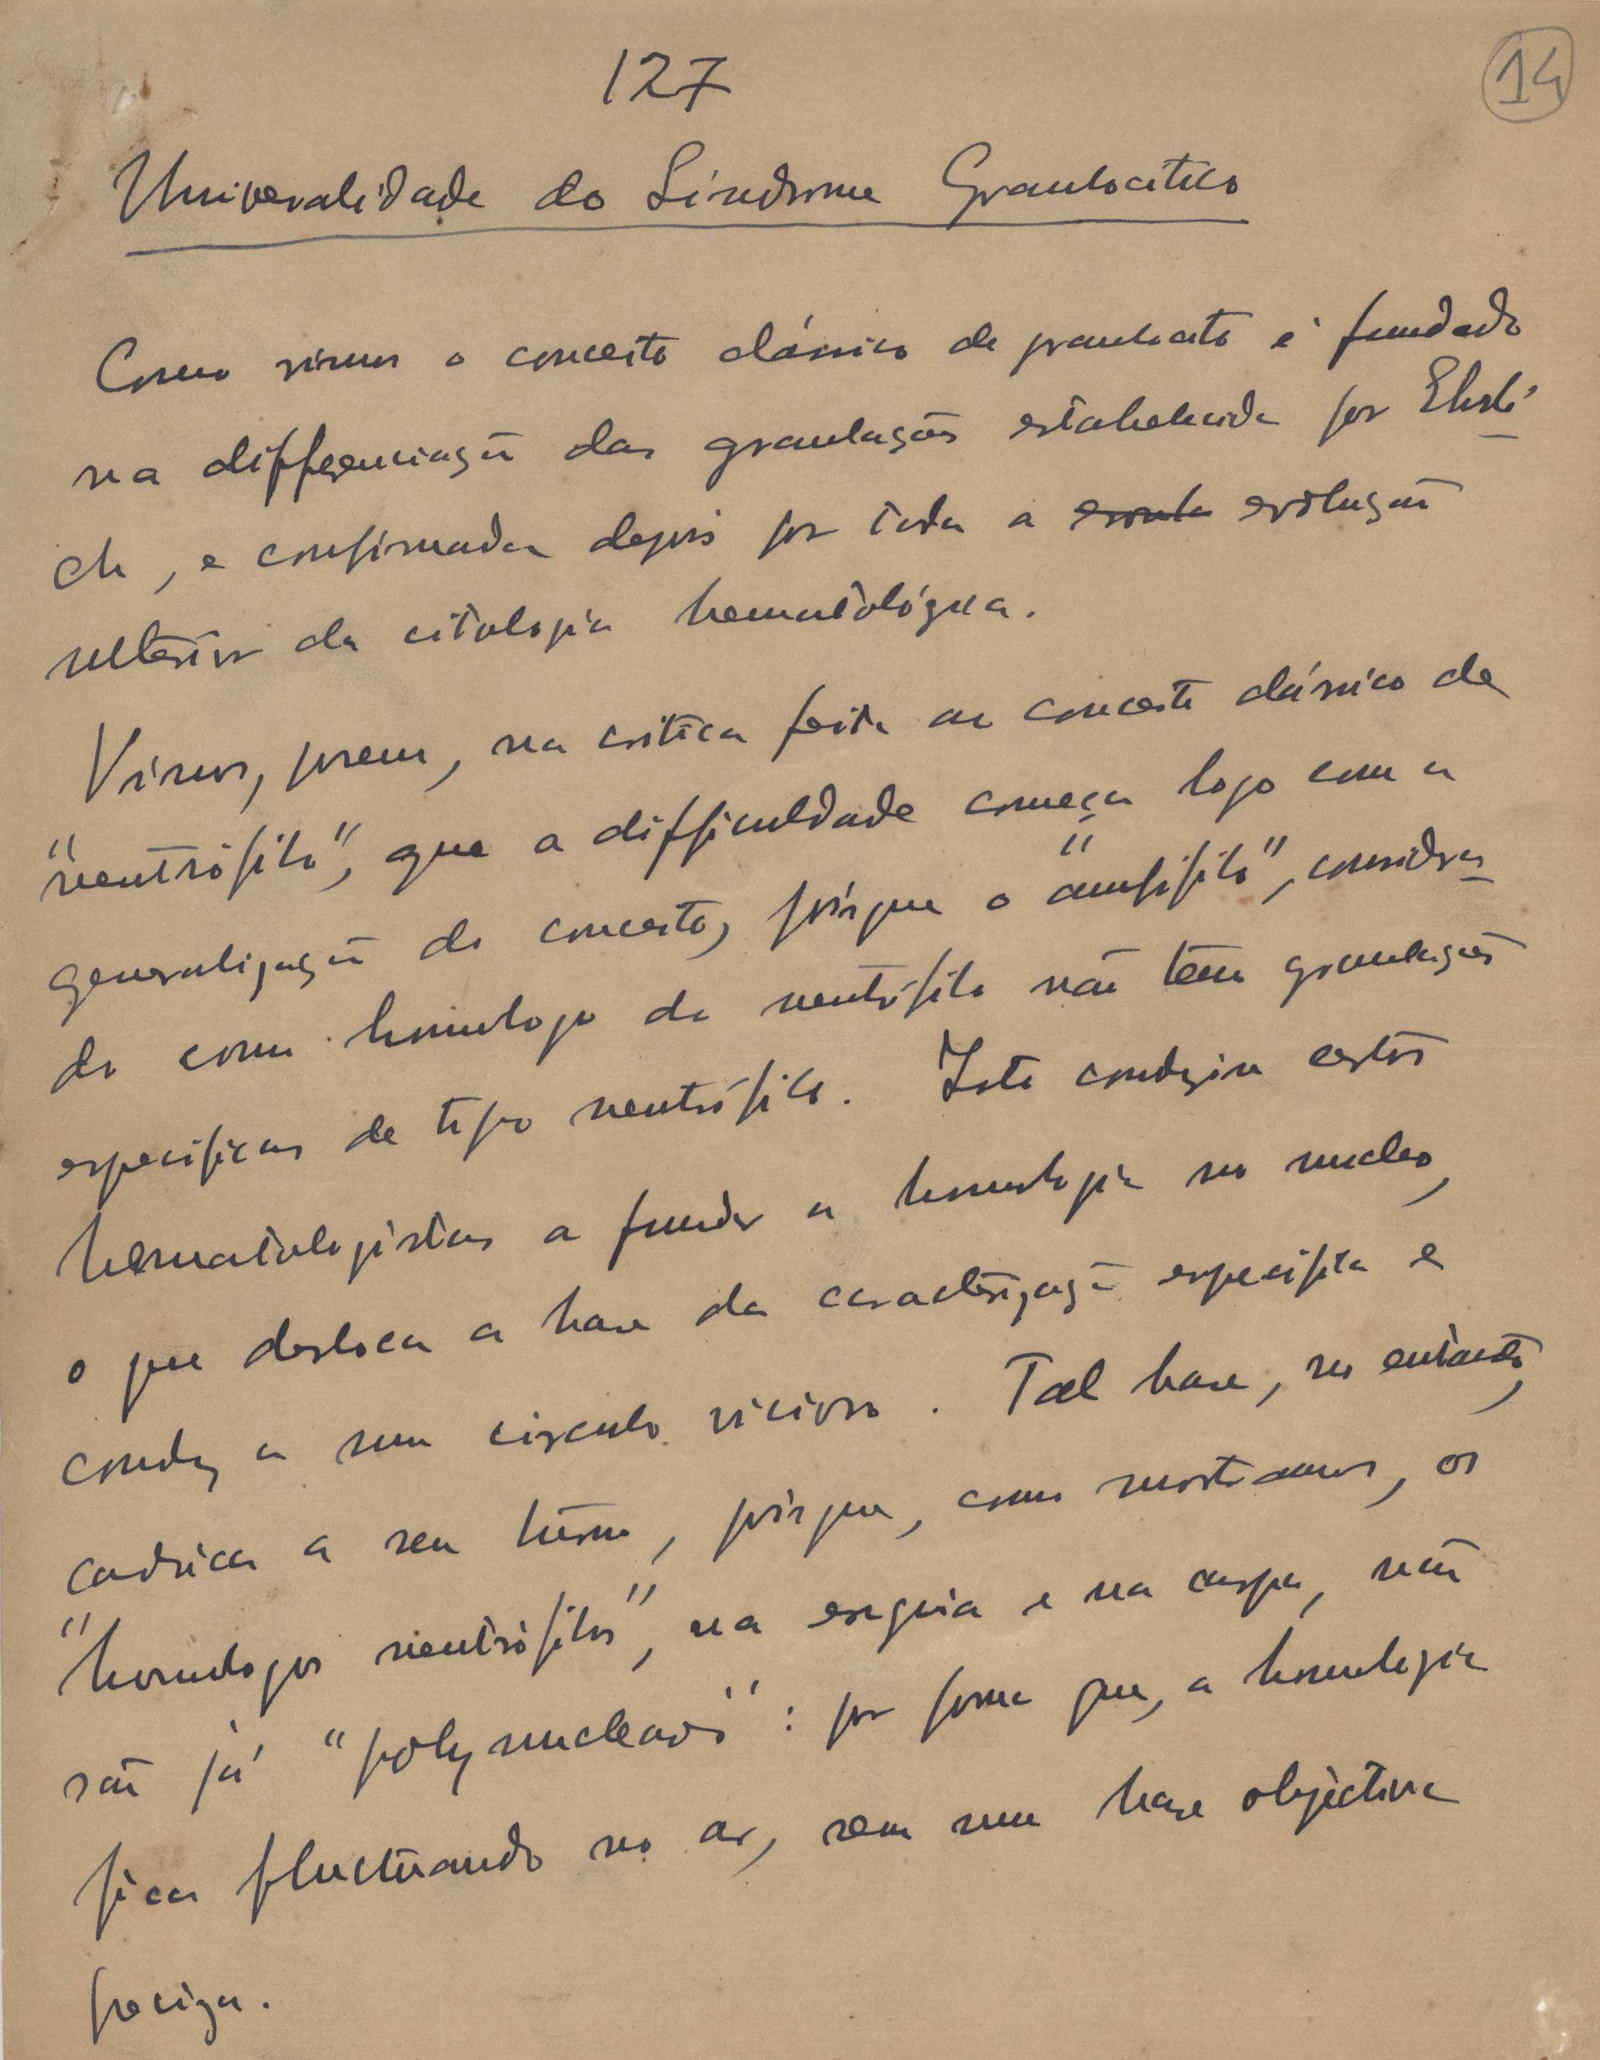 127
14
Universalidade do Síndrome Granulocitico
Como vimos o conceito clássico de granulocito é fundado
na differenciação das granulações estabelecida por Ehrli-
ch, e confirmada depois por toda a evolução
ulterior da citologia hematológica.
Vimos, porem, na critica feita ao conceito clássico de
"neutrófilo", que a difficuldade começa logo com a
generalização do conceito, pórque o "amfófilo", considera-
do como homologo do neutrófilo não tem granulações
especificas de tipo neutrófilo. Isto conduziu certos
hematologistas a fundar a homologia no nucleo,
o que desloca a base da caracterização especifica e
conduz a um circulo vicioso. Tal base, no entanto,
caduca a seu turno, pórque, como mostramos, os
"homologos neutrófilos", na enguia e na carpa, não
são já "polynucleares": por forma que, a homologia
fica fluctuando no ar, sem uma base objectiva
preciza.